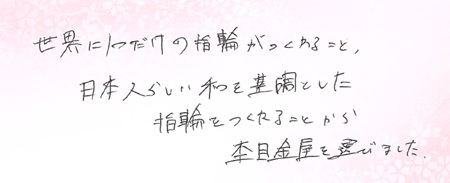 世界に1つだけの指輪がつくれること、
日本人らしい和を基調とした
指輪をつくれることから
杢目金屋を選びました。